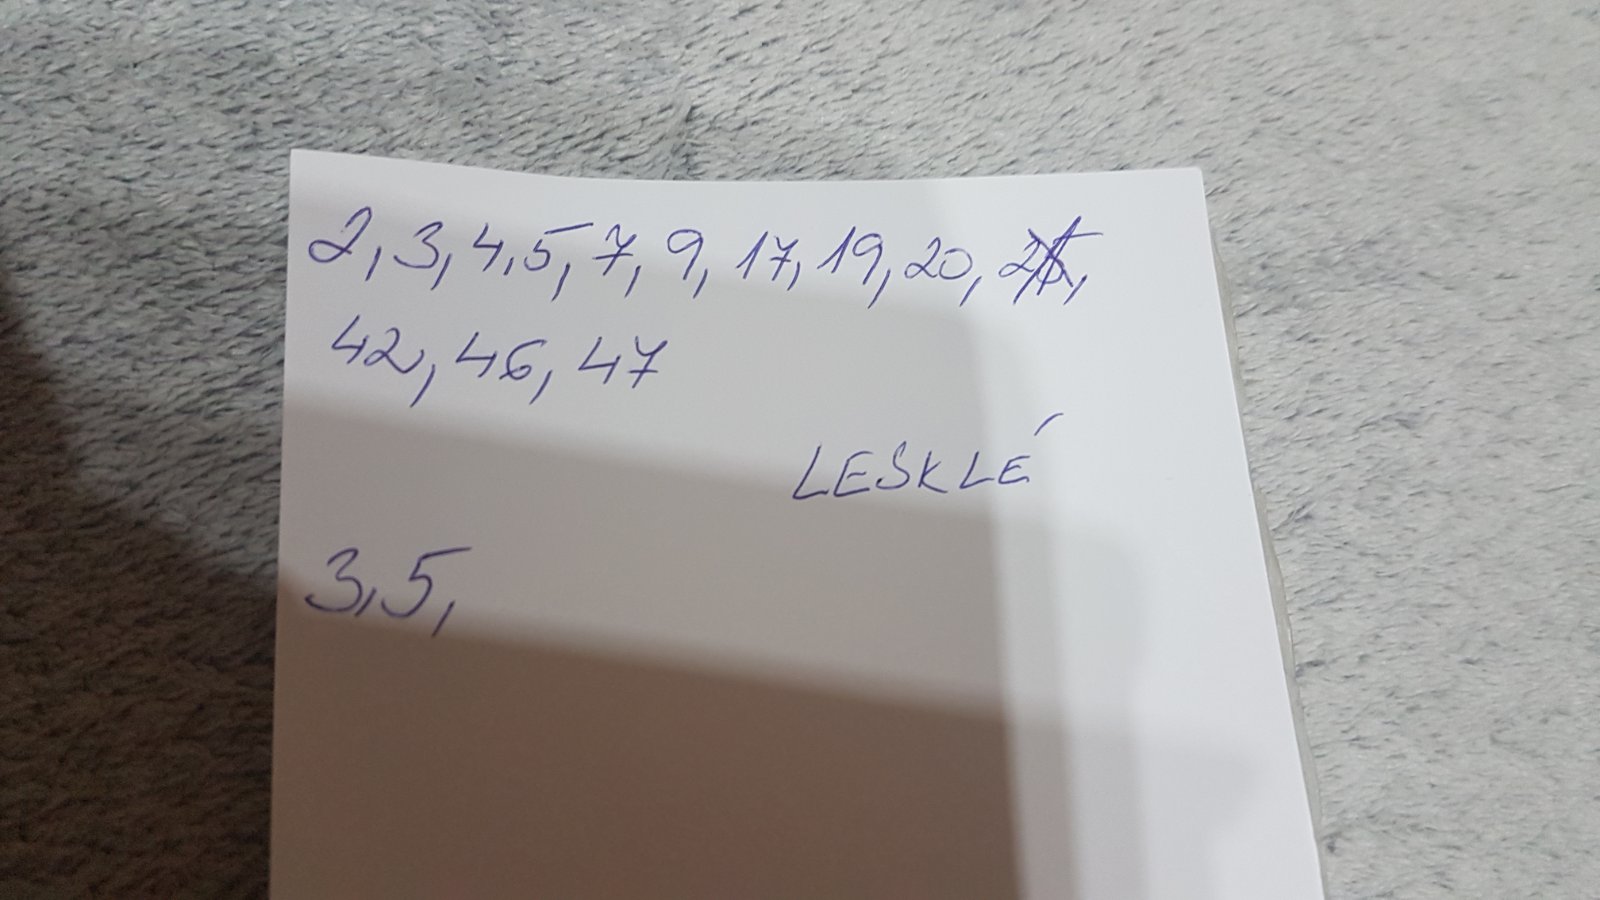 2, 3, 4, 5, 7, 9, 17, 19, 20,
42, 46, 47
LESKLÉ
3, 5,